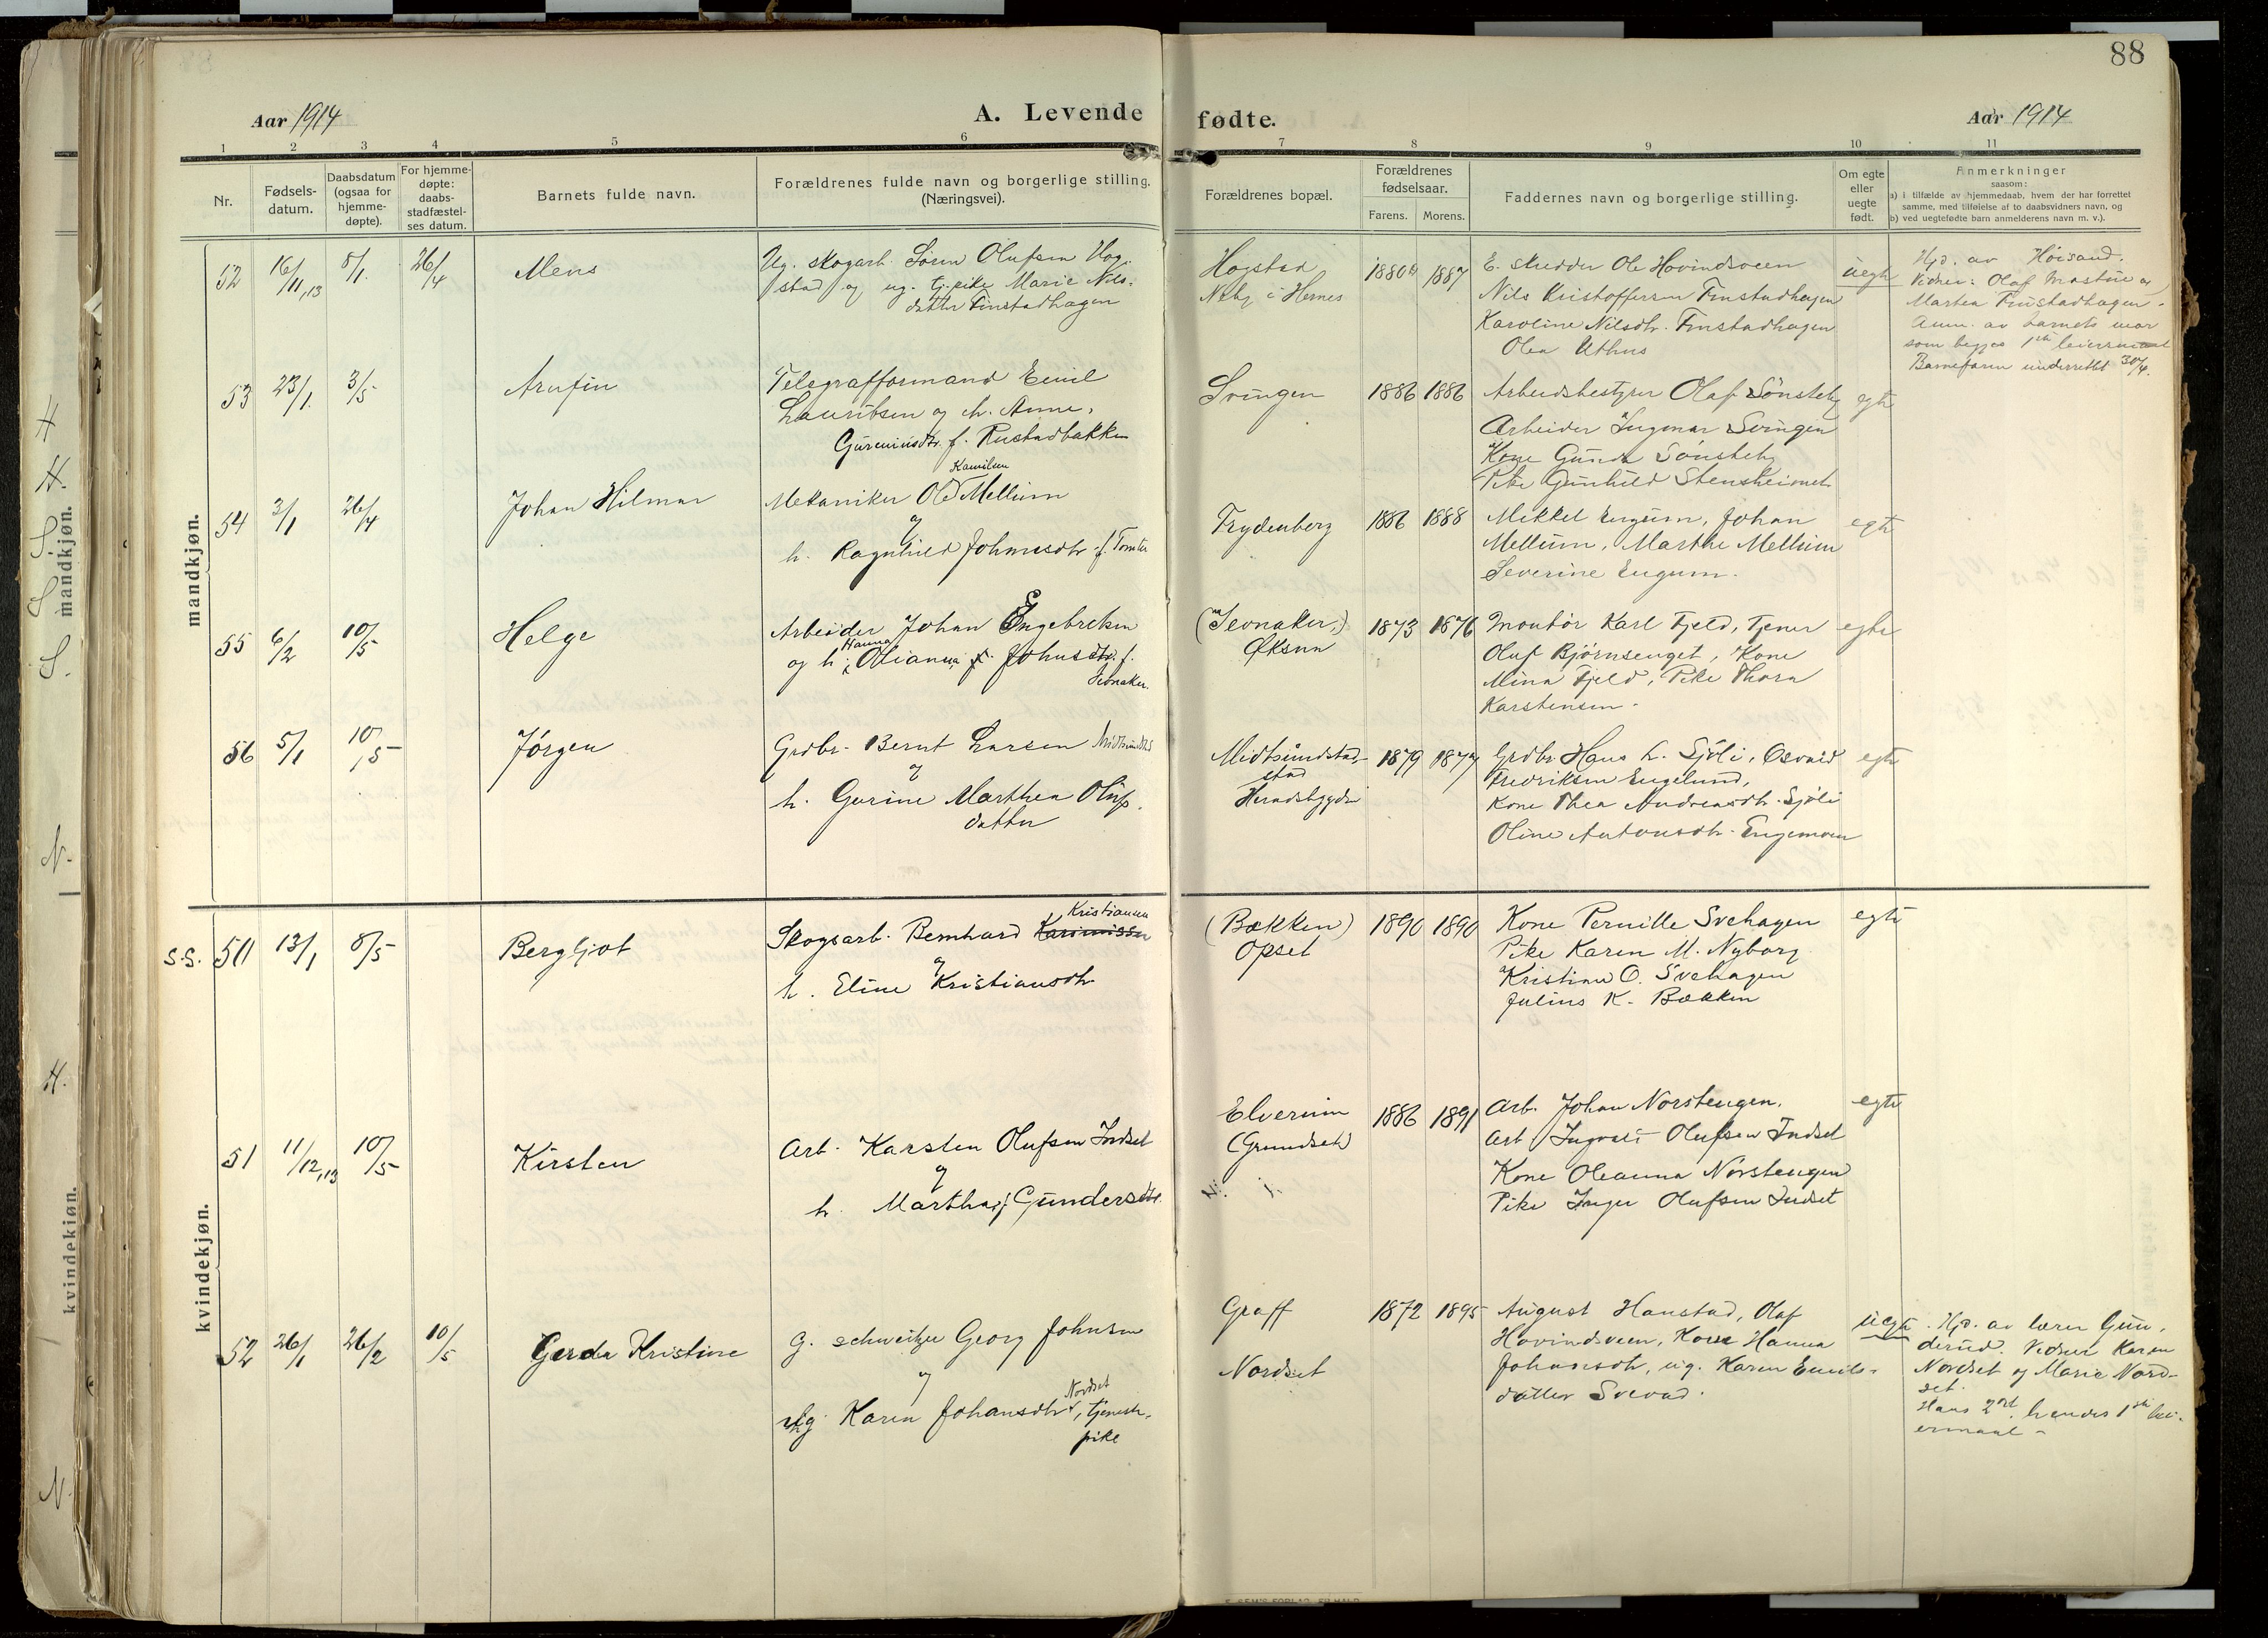 88
Aar 1914
A. Levende
fødte.
Aar 1914
1 2 3 4 5 6 7 8 9 10 11
Nr.
Fødsels-
datum.
Daabsdatum
(ogsaa for
hjemme-
døpte).
For hjemme-
døpte:
daabs-
stadfæstel-
ses datum.
Barnets fulde navn.
Forældrenes fulde navn og borgerlige stilling.
(Næringsvei).
Forældrenes bopæl.
Forældrenes
fødselsaar.
Farens. Morens.
Faddernes navn og borgerlige stilling.
Om egte
eller
uegte
født.
Anmerkninger
saasom:
a) i tilfælde av hjemmedaab, hvem der har forrettet
samme, med tilføielse af to daabsvidners navn, og
b) ved uegtefødte barn anmelderens navn m. v.).
mandkjøn.
52 16/11,13 8/1. 26/4
Mens
Ug. skogarb. Søren Olufsen Hog-
stad og ug. tj.pike Marie Nils-
datter Finstadhagen
Hogstad
Neby i Hernes
1880 1887
E. skredder Ole Hovindsveen
Nils Kristoffersen Finstadhagen
Karoline Nilsdtr. Finstadhagen
Olea Uthus
uegte
Hjd. av Høisand.
Vidner: Olaf Mastue og
Marthea Finstadhagen.
Anm. av barnets mor
som begges 1ste leiersmaal
Barnefaren underrettet 30/4.
53 23/1. 3/5
Arnfin
Telegrafformand Emil
Lauritsen og h. Anne
Gureniusdtr. f. Rustadbakken
Svingen
1886 1886
Arbeidsbestyrer Olaf Sønsteby
Arbeider Ingmar Svingen
Kone Gunda Sønsteby
Pike Gunhild Stensheimet
egte
54 3/1 26/4
Johan Hilmar
Kamilen
Mekaniker Ole Mellum
og
h. Ragnhild Johnnesdtr. f. Tomter
Frydenberg
1886 1888
Mikkel Engum, Johan
Mellum, Marthe Mellum
Severine Engum.
egte
55 6/2 10/5
Helge
Arbeider Johan Engebretsen
Hanna
og h. Oliana Johnsdtr. f.
Sevnaker.
(Sevnaker,)
Øksna
1873 1876
Montør Karl Fjeld, Tjener
Oluf Bjørnsenget, Kone
Mina Fjeld, Pike Thora
Karstensen.
egte
56 5/1 10/5
Jørgen
Grdbr. Bernt Larsen Midtsundstad
og
h. Gurine Marthea Olufs.
datter
Midtsundstad
stad
Heradsbygda
1879 1877
Grdbr. Hans L. Sjøli, Osvald
Fredriksen Engelund,
Kone Thea Andreasdtr. Sjøli
Oline Antonsdtr. Engemoen
egte
kvindekjøn.
S.S. 50 13/1 8/5
Bergljot
Kristiansen
Skogsarb. Bernhard Karinissen
og
h. Eline Kristiansdtr
(Bækken)
Opset
1890 1890
Kone Pernille Svehagen
Pike Karen M. Nyborg
Kristian O. Svehagen
Julius K. Bækken
egte
51 11/12,13 10/5
Kirsten
Arb. Karsten Olufsen Indset
og
h. Martha f. Gundersdtr.
Elverum
(Grundset)
1886 1891
Arb. Johan Norstengen.
Arb Ingvald Olufsen Indset
Kone Oleanna Norstengen
Pike Inger Olufsen Indset
egte
52 26/1 26/2 10/5
Gerda Kristine
G. schweitzer Georg Johnsen
og
Nordset
ug. Karen Johansdtr, tjeneste-
pike
Graff
Nordset
1872 1895
August Hanstad, Olaf
Hovindsveen, Kone Hanna
Johansdtr, ug. Karen Emils-
datter Svevad.
uegte
Hjd. av lærer Gun-
derud. Vidner Karen
Nordset og Marie Nord-
set.
Hans 2det, hendes 1ste lei-
ermaal -